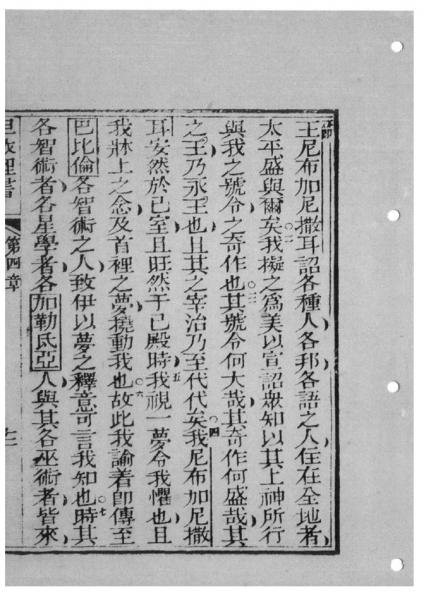 王尼布加尼撒耳詔各種人各邦各語之人住在全地者
太平盛與爾矣我擬之爲美以宣詔衆知以其上神所行
與我之號令之奇作也其號令何大哉其奇作何盛哉其
之王乃永王也且其之宰治乃至代代矣我尼布加尼撒
耳安然於己室且旺然于己殿時我視一夢令我懼也且
我牀上之念及首裡之夢撓動我也故此我諭着即傳至
巴比倫各智術之人致伊以夢之釋意可言我知也時其
各智術者各星學者各加勒氏亞人與其各巫術者皆來
第四章